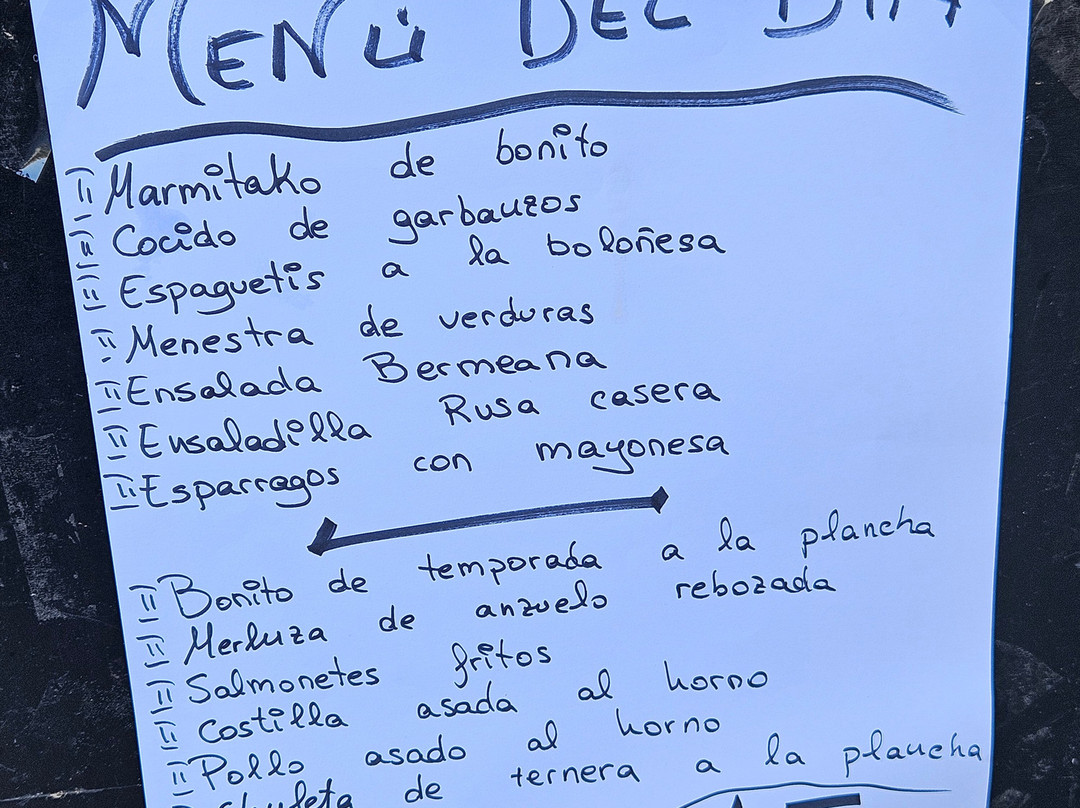 MENÚ DEL DIA
Marmitako de bonito
Cocido de garbanzos
Espaguetis a la boloñesa
Menestra de verduras
Ensalada Bermeana
Ensaladilla Rusa casera
Esparragos con mayonesa
Bonito de temporada a la plancha
Merluza de anzuelo rebozada
Salmonetes fritos
Costilla asada al horno
Pollo asado al horno
Chuleta de ternera a la plancha